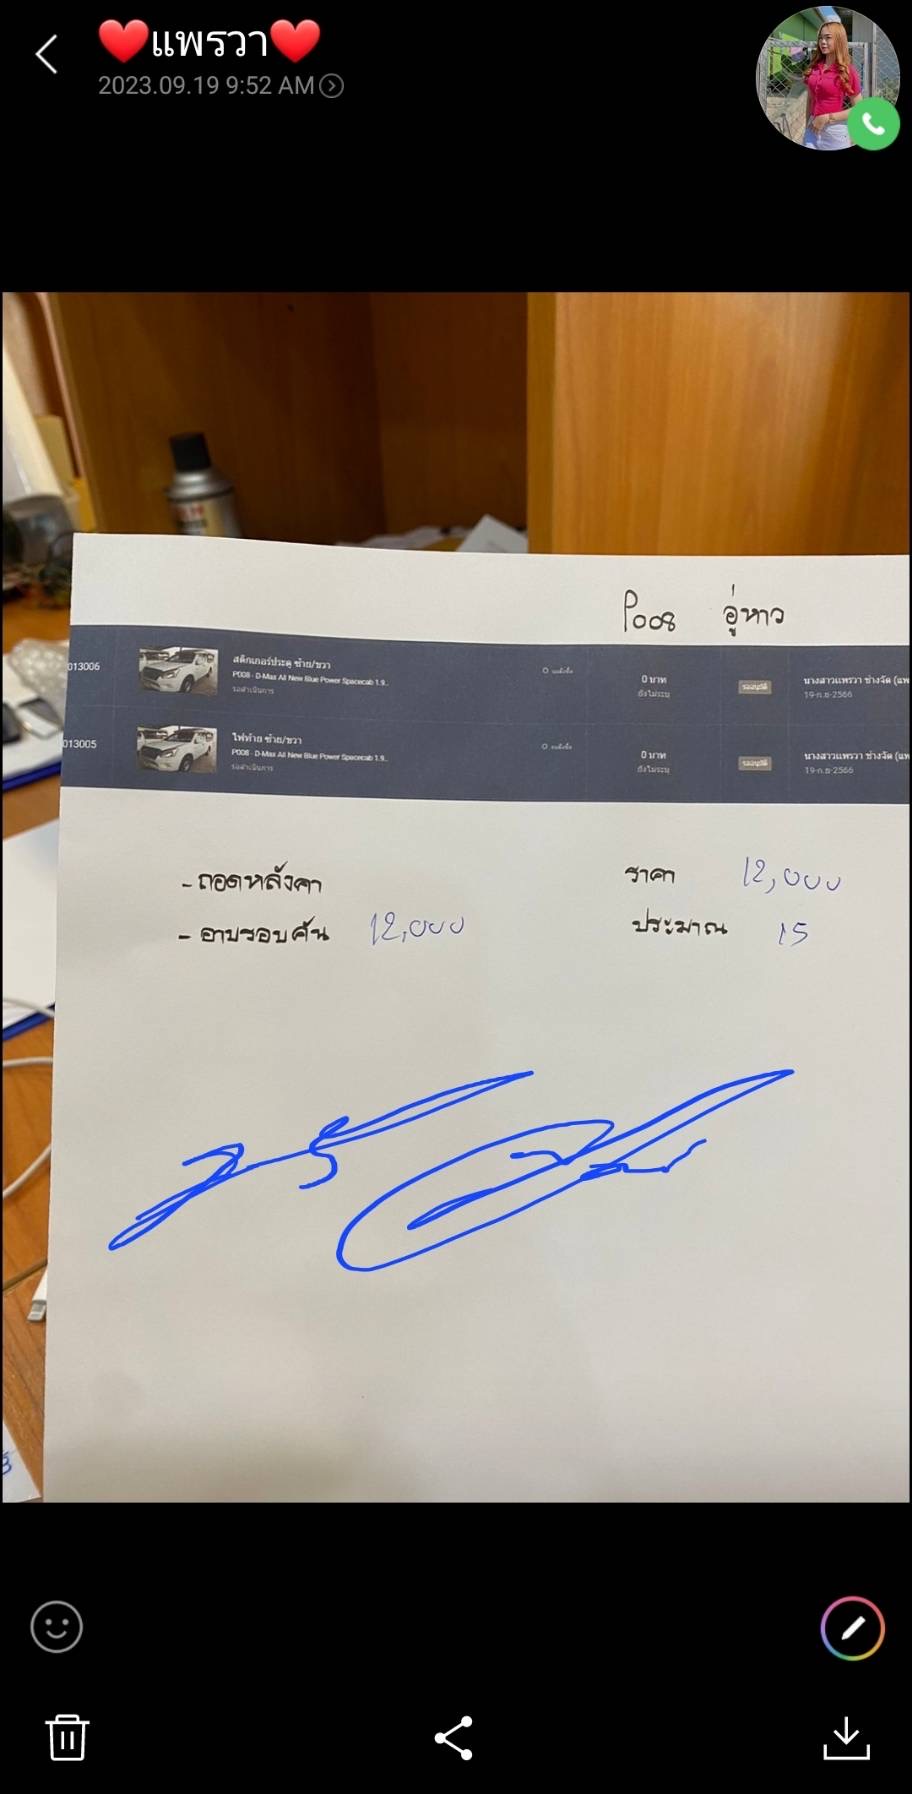 ❤️แพรวา❤️
2023.09.19 9:52 AM
P008 อู่หาว
013006
สติกเกอร์ประตู ซ้าย/ขวา
P008 - D-Max All New Blue Power Spacecab 1.9..
รอดำเนินการ
0 บาท
ยังไม่ระบุ
รออนุมัติ
นางสาวแพรวา ช่างวัด (แพ
19-ก.ย-2566
013005
ไฟท้าย ซ้าย/ขวา
P008 - D-Max All New Blue Power Spacecab 1.9..
รอดำเนินการ
0 บาท
ยังไม่ระบุ
รออนุมัติ
นางสาวแพรวา ช่างวัด (แพ
19-ก.ย-2566
- ถอดหลังคา
ราคา 12,000
- อาบรอบคัน 12,000
ประมาณ 15